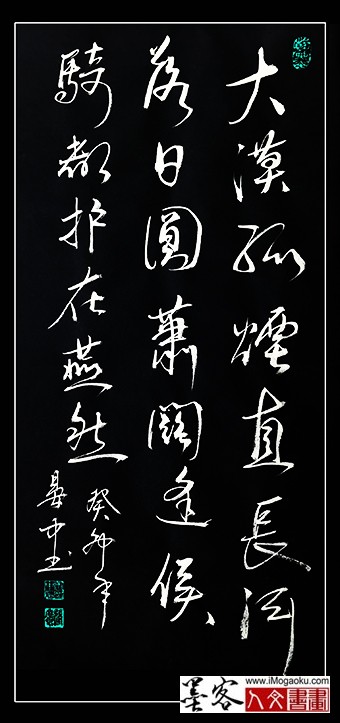 大漠孤煙直長河
落日圓蕭關逢候
騎都护在燕然
癸卯年
书
墨客
www.iMogaoku.com
人文書畫